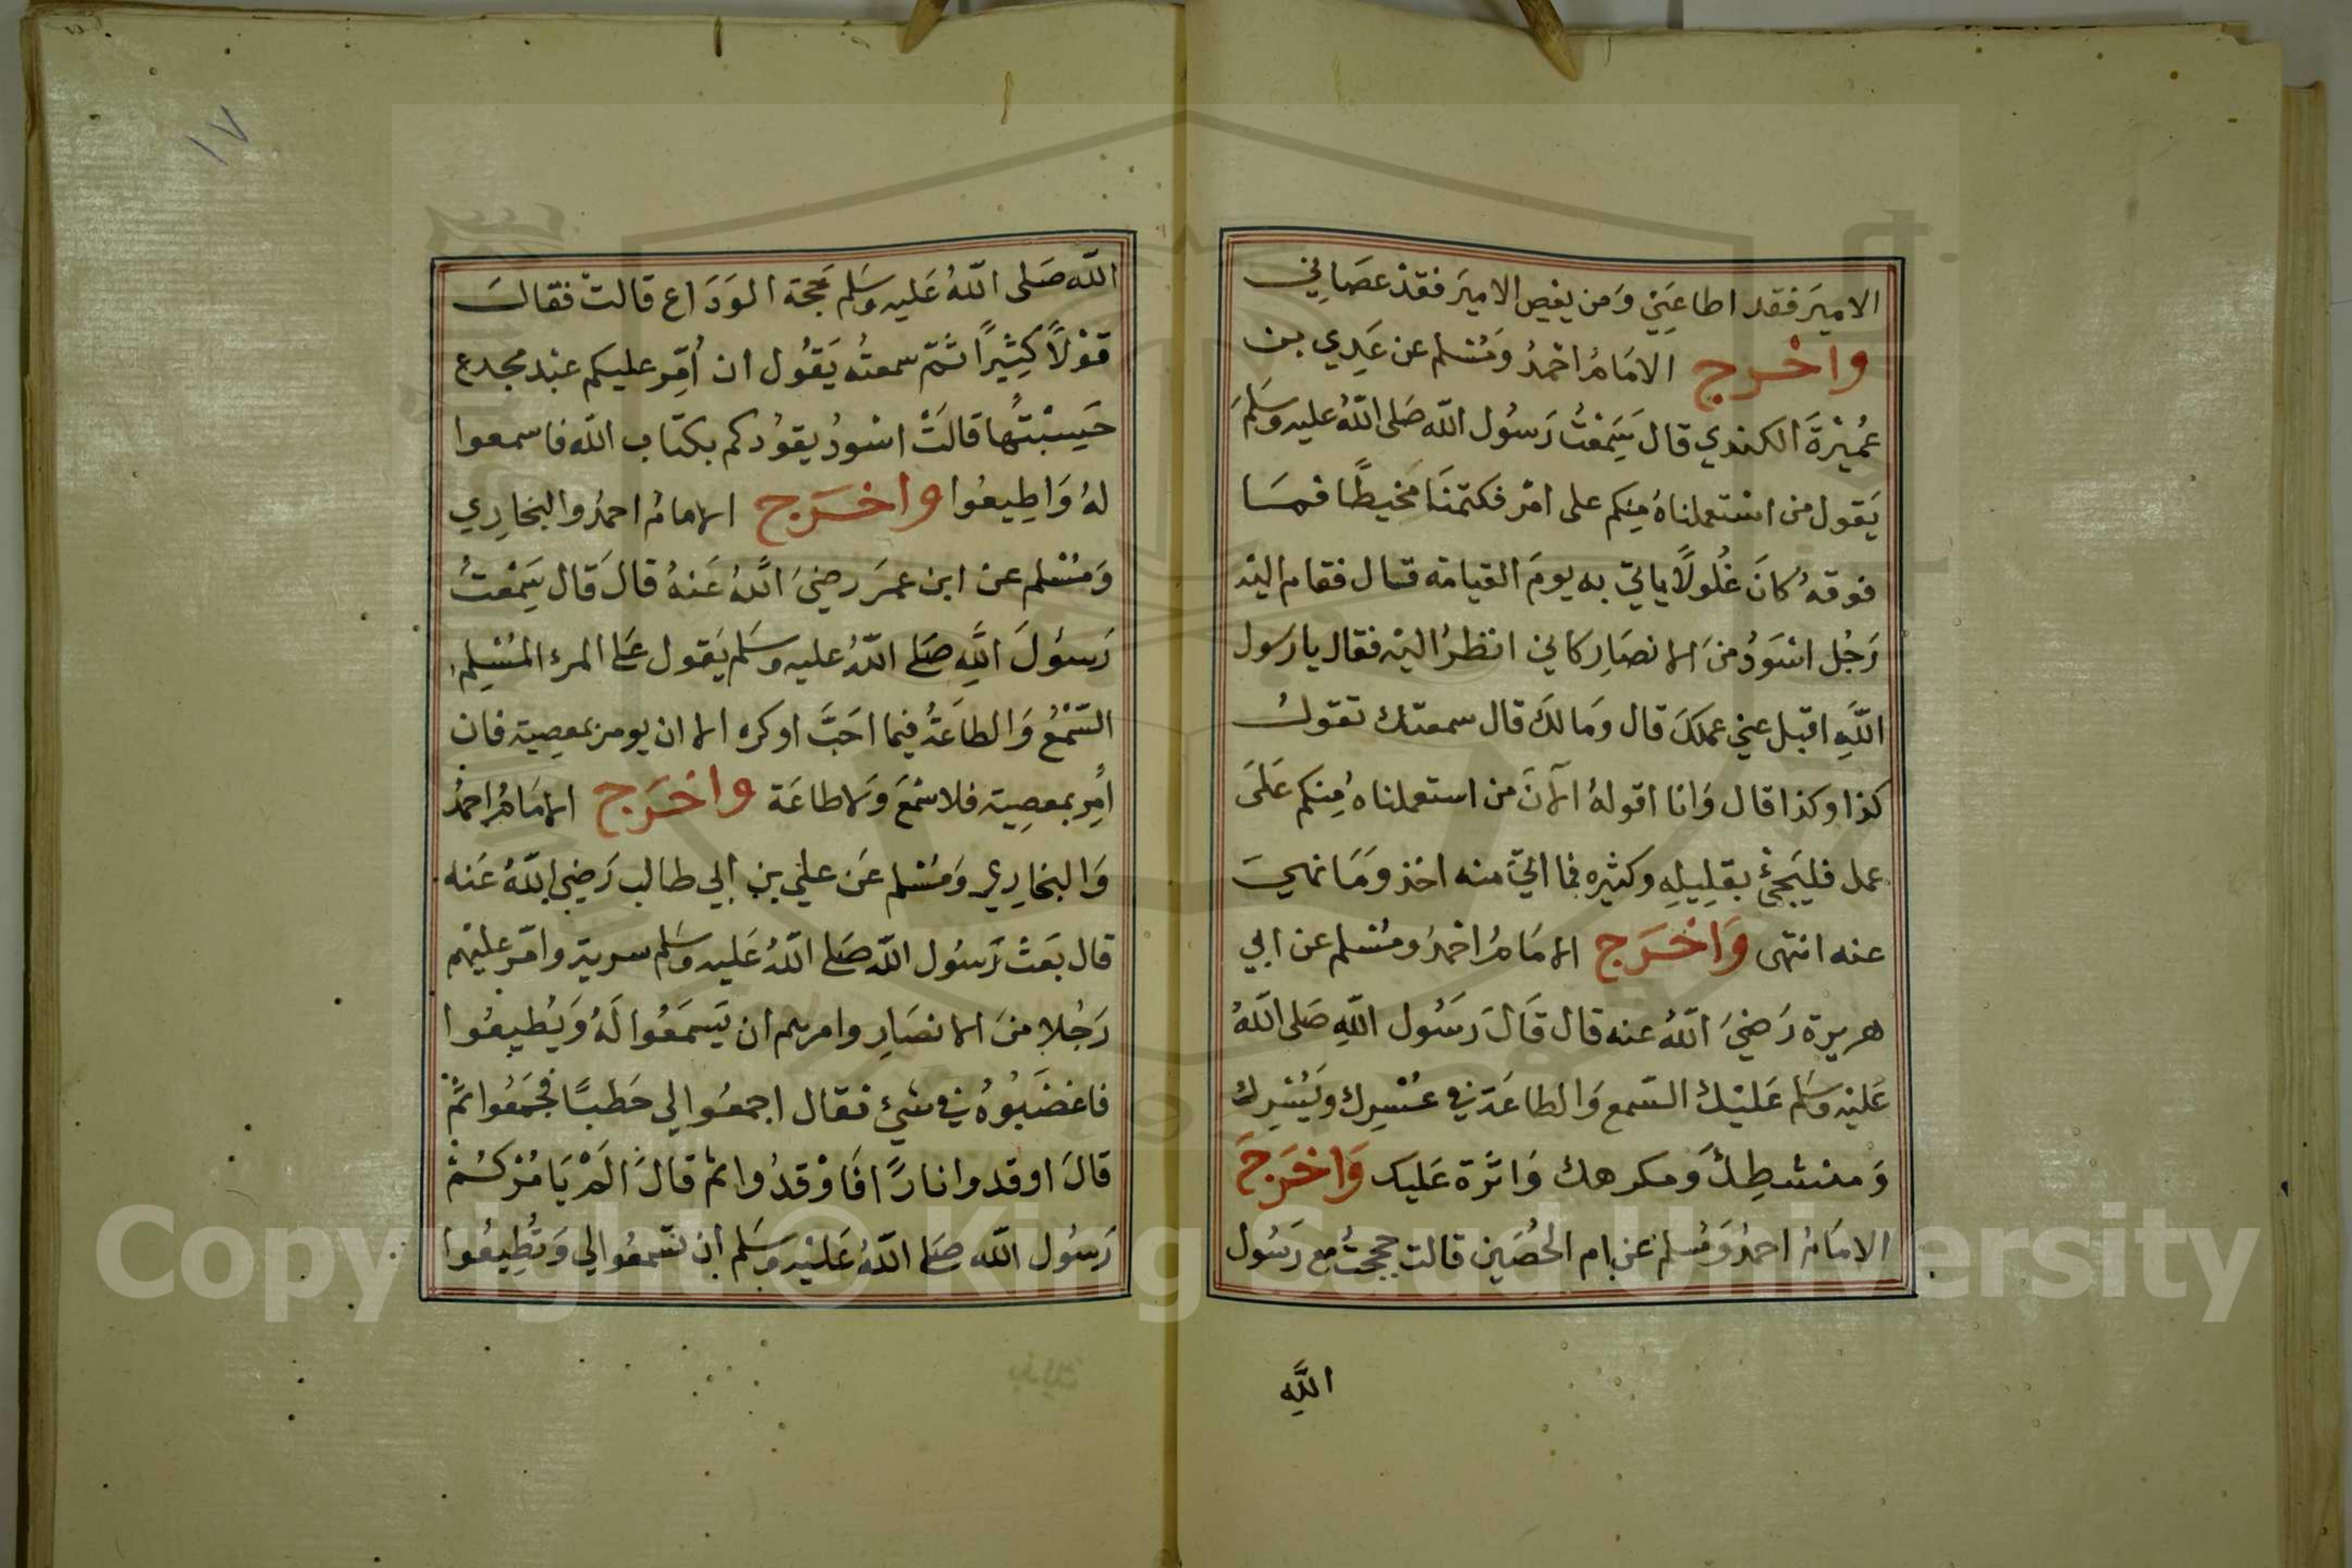 الاميَر فقد اطاعَنِي وَمن يعص الاميَر فقدْ عصَانِي
واخرج الامَامُ احْمدُ وَمُسْلم عن عَدِي بن
عُمَيْرَةَ الكندي قال سَمِعْتُ رَسُول الله صَلى اللهُ عليه وسَلمَ
يَقول من استعملناهُ مِنكم على امْر فكتمنَا مَخيطًا فمسَا
فوقهُ كانَ غُلُولًا ياتي به يومَ القيامة قال فقام اليْه
رَجُل اسْوَدُ منَ الانصَار كاني انظرُ اليْه فقال يا رسول
اللَّهِ اقبل عني عملكَ قال وَمالكَ قال سمعتك تقولُ
كذا وكذا قال وَانا اقولهُ الآنَ من استعملناهُ مِنكم عَلَى
عمل فليَجئْ بقلِيلِهِ وكثيره فما اتِيَ منه اخذ وَمَا نهيَ
عنه انتهى وَاخْرَج الامَامُ احْمدُ ومُسْلم عن ابي
هريرة رَضيَ اللهُ عنه قال قَالَ رَسُول اللهِ صَلى اللهُ
عَليْه وسَلم عَليْكَ السّمع وَالطاعَة في عُسْرِك ويُسْرِك
وَمنشطِكَ وَمكرهك وَاثَرة عَليك وَاخْرَجَ
الامَامُ احمدُ وَمُسلم عَن ام الحُصَين قالت حججتُ مع رَسُول
الله
الله صَلى اللهُ عَليه وسَلم حَجة الوَدَاع قالتْ فقالَ
قوْلًا كثِيرًا ثمّ سمعتُه يَقُول ان اُمِّر عليكم عبْد مجدع
حَسِبْتُها قالَتْ اسْودُ يقوُدكم بكتاب الله فاسمعوا
لهُ وَاطِيعُوا واخرَج الامامُ احمدُ والبخارِي
وَمُسْلم عن ابن عمرَ رضيَ اللهُ عَنهُ قالَ قَال سَمِعْتُ
رَسوُلَ اللَّهِ صَلى اللهُ عليه وسَلم يَقول عَلى المرء المُسْلِم
السّمْعُ وَالطاعَةُ فيما احَبَّ او كره الا ان يومر بمعصِية فان
اُمِر بمعصِية فلا سَمْعَ وَلا طاعَة واخرَج الامَامُ احمدُ
وَالبخارِي وَمُسْلم عَن علي بن ابي طالب رَضي اللهُ عَنه
قال بَعَثَ رَسُول الله صَلى اللهُ عَليه وسَلم سرية وامّر عليهم
رَجُلا منَ الانصَارِ وامرهم ان يَسمَعُوا لَهُ وَيُطيعُوا
فاغضَبُوهُ في شيْ فقال اجمعُوا لي حَطبًا فجمَعُوا ثمَّ
قالَ اوقدوا نارًا فَاوْقدُوا ثم قالَ الَمْ يَامُرْكُم
رَسُول الله صَلى اللهُ عَليْه وسَلم ان تسمعُوا لي وَتُطِيعُوا
١٧
Copyright © King Saud University